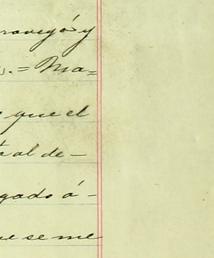 novejó y
s. = Ma=
que el
tal de-
gado á-
ue se me